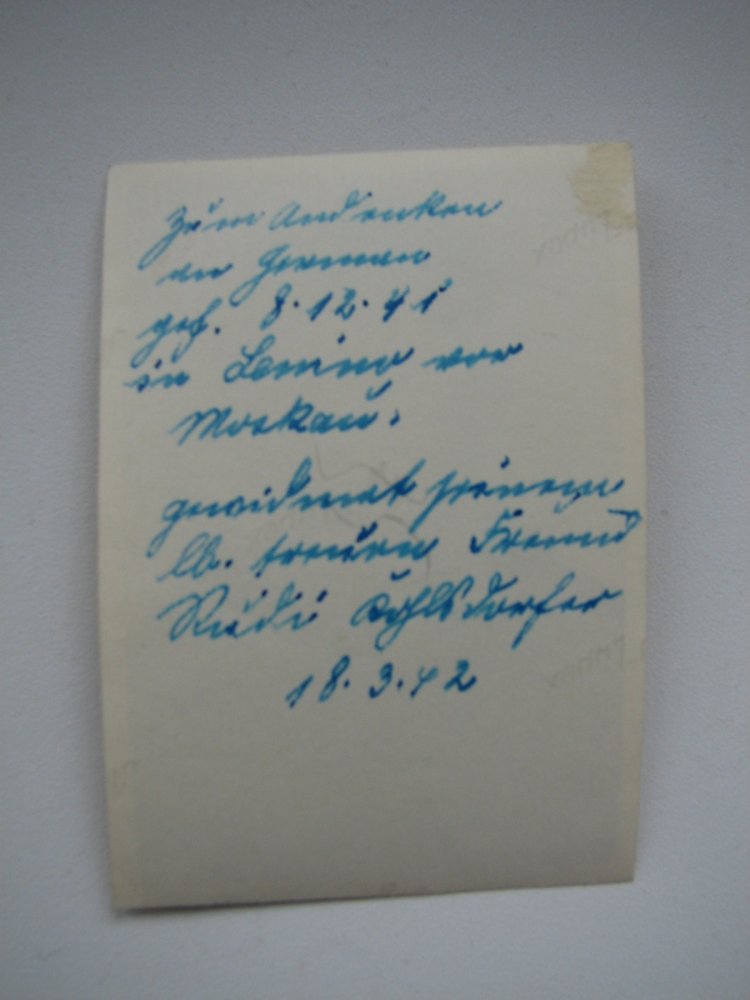 Zum Andenken
an German
gef. 8.12.41
in Lenino vor
Moskau.
gewidmet seinem
lb. treuen Freund
Rudi
18.3.42